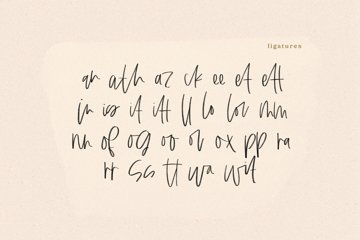 ligatures
an ath az ck ee et ett
in is it itt ll lo lor mm
nn of og oo or ox pp ra
rr ss tt wa wit